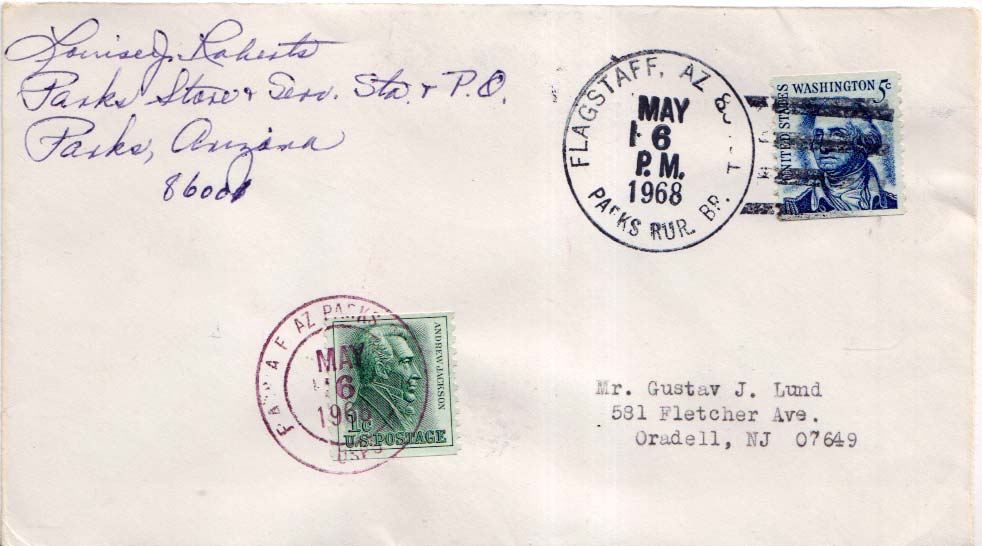 Louise J. Roberts
Parks Store & Serv. Sta. & P.O.
Parks, Arizona
86001
FLAGSTAFF, AZ &
MAY
6
P.M.
1968
PARKS RUR. BR.
WASHINGTON 5c
UNITED STATES
AZ PARKS
MAY
6
1968
ANDREW JACKSON
1c
U.S. POSTAGE
Mr. Gustav J. Lund
581 Fletcher Ave.
Oradell, NJ 07649